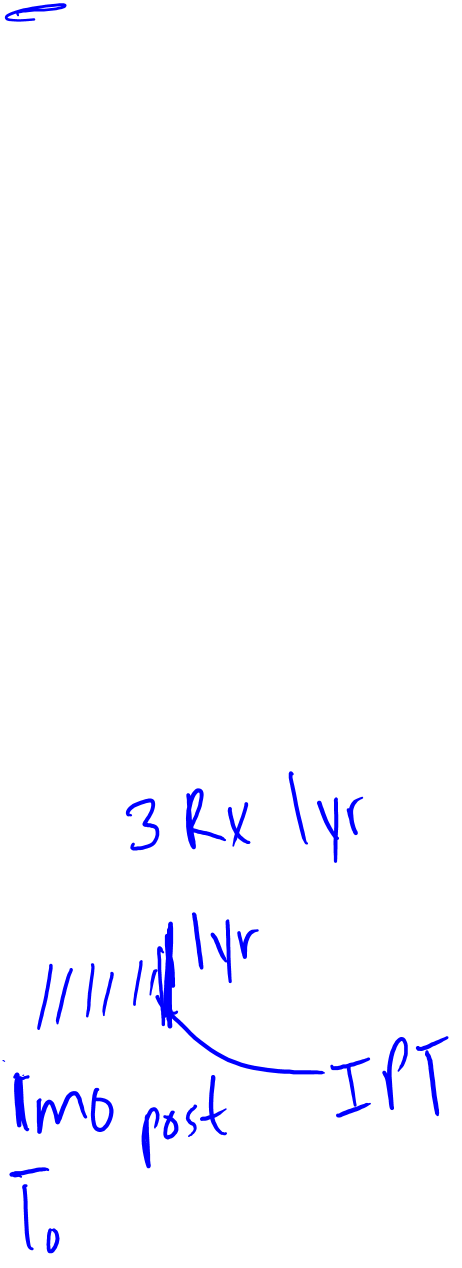 3 Rx 1yr
1yr
IPT
1mo post
T0